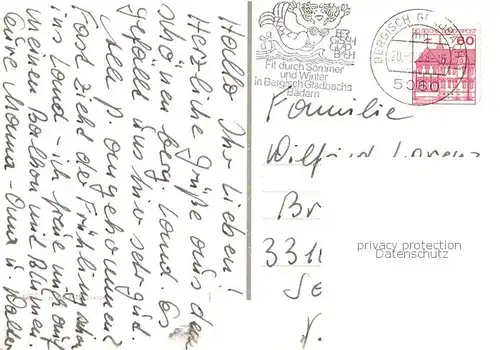 Hallo Ihr Lieben!
Herzliche Grüße aus dem
schönen berg. Land. Es
gefällt uns hier sehr gut.
P. angekommen?
Fast zieht der Frühling schon
ins Land - ich freue mich auf
meinen Balkon und Blumen.
Eure Mama - Oma u.
BERGISCH GLADBACH
5060
60
Fit durch Sommer
und Winter
in Bergisch Gladbachs
Bädern
Familie
Wilfried Lorenz
Br
331
privacy protection
Datenschutz